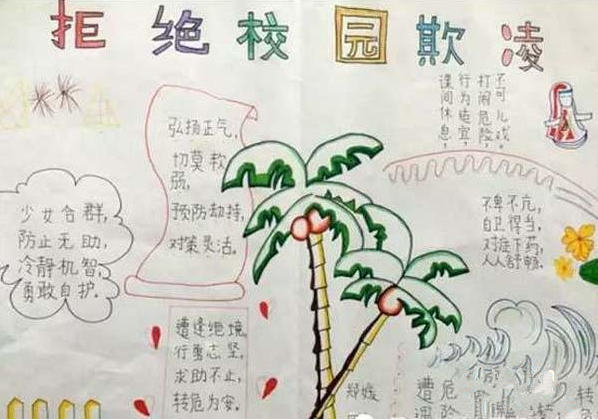 拒绝校园欺凌
弘扬正气,
切莫软
弱,
预防劫持,
对策灵活。
课间休息,
行为适宜,
打闹危险,
不可儿戏。
少女合群,
防止无助,
冷静机智,
勇敢自护。
不卑不亢,
自卫得当,
对症下药,
人人舒畅。
遭逢绝境,
行勇志坚,
求助不止,
转危为安。
危险
遭
转